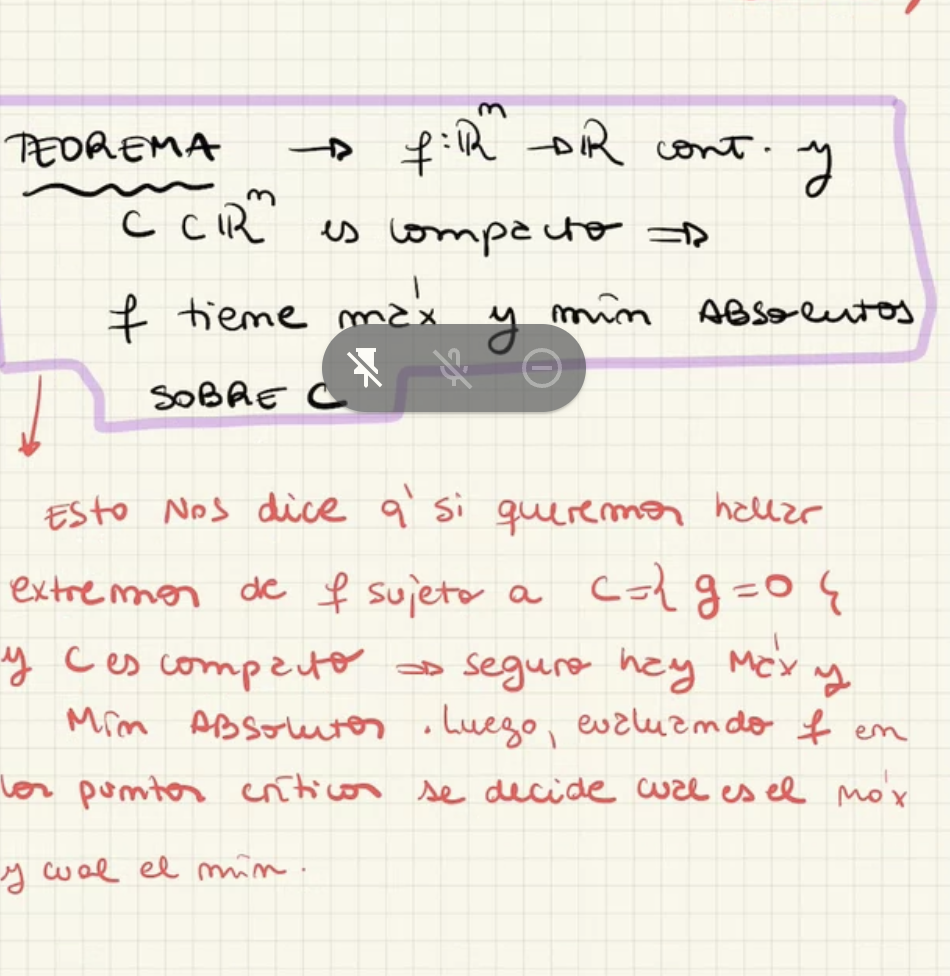 TEOREMA → f: ℝⁿ → ℝ cont. y
C ⊂ ℝⁿ es compacto ⇒
f tiene máx y mín ABSOLUTOS
SOBRE C
Esto Nos dice q' si queremos hallar
extremos de f sujeto a C={ g=0 {
y C es compacto ⇒ seguro hay Máx y
Mín ABSOLUTOS. Luego, evaluando f en
los puntos críticos se decide cual es el máx
y cual el mín.